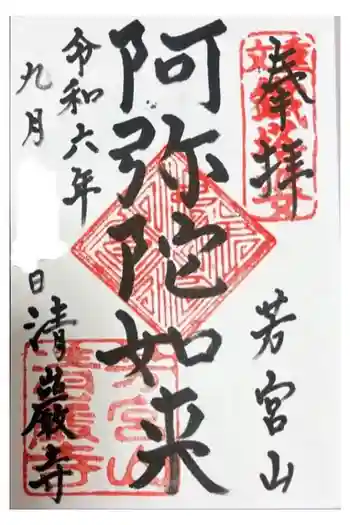 奉拝
芳宮山
阿弥陀如来
令和六年
九月
日
清巌寺